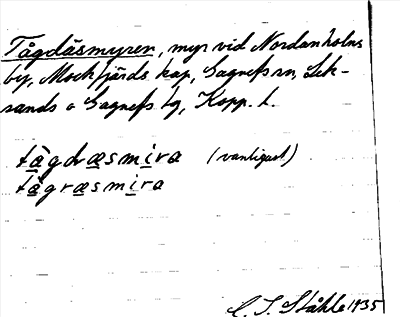 Tågdäsmyren, myr vid Nordanholns
by, Mockfjärds kap, Gagnefs sn, Lek-
sands o Gagnefs tg, Kopp. l.
tågdræsmira (vanligast)
tågræsmira
C. I. Ståhle 1935